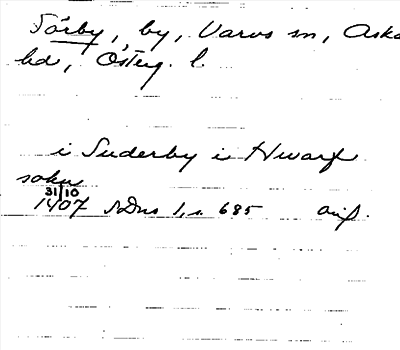 Sörby, by, Varvs sn, Aska
hd, Österg. l.
i Suderby i Hwarf
sokn
31/10
1407 SDns 1, s. 685 avs.